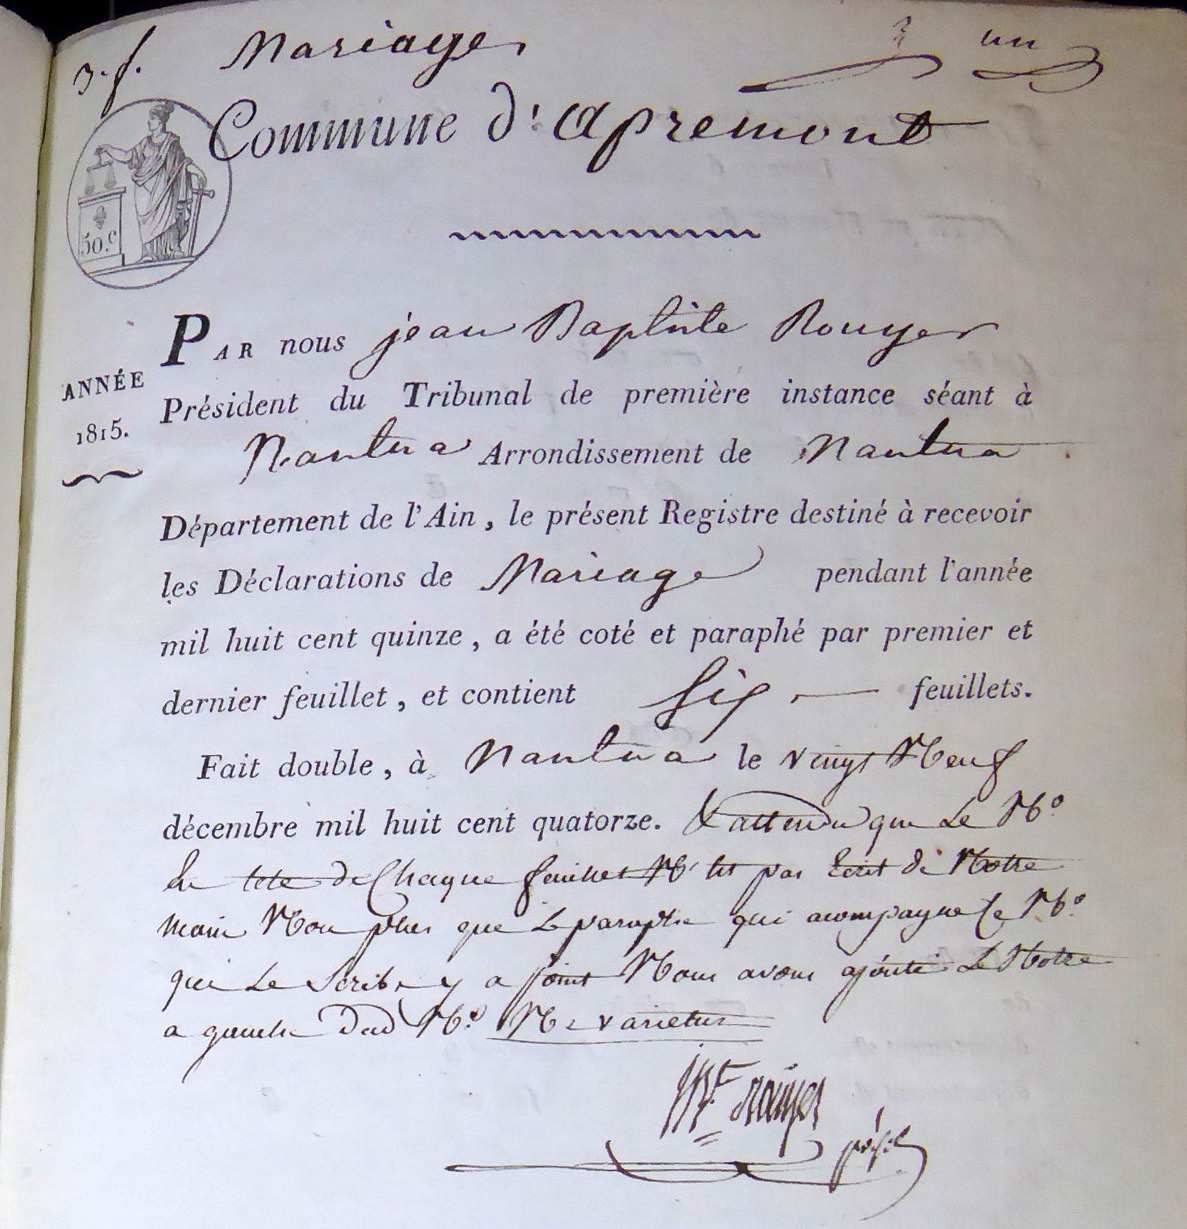 3. f. Mariage un
Commune d'apremont
50.c
PAR nous jean Baptiste Rouyer
ANNÉE
1815.
Président du Tribunal de première instance séant à
Nantua Arrondissement de Nantua
Département de l'Ain, le présent Registre destiné à recevoir
les Déclarations de Mariage pendant l'année
mil huit cent quinze, a été coté et paraphé par premier et
dernier feuillet, et contient Six feuillets.
Fait double, à Nantua le vingt Neuf
décembre mil huit cent quatorze. & attendu que Le N.o
En tete de Chaque feuillet N'est pas Ecrit de Notre
main Non plus que Le paraphe qui acompagne Ce N.o
que Le Scribe y a joint Nous avons ajouté Le Notre
a gauche Dud N.o Ne varietur
Rouyer